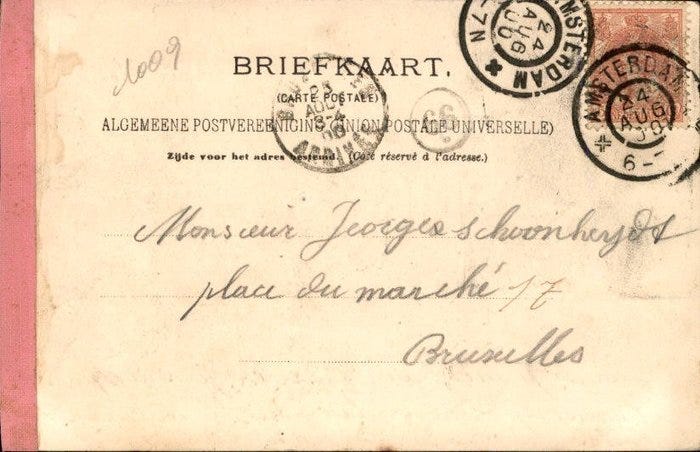 1009
BRIEFKAART.
(CARTE POSTALE)
ALGEMEENE POSTVEREENIGING (UNION POSTALE UNIVERSELLE)
Zijde voor het adres bestemd. (Côté réservé à l'adresse.)
AMSTERDAM
24
AUG
00
-7N
AMSTERDAM
24
AUG
00
6-7
25
AOUT
00
ARRIVÉE
99
Monsieur Georges Schoonheydt
place du marché 17
Bruxelles